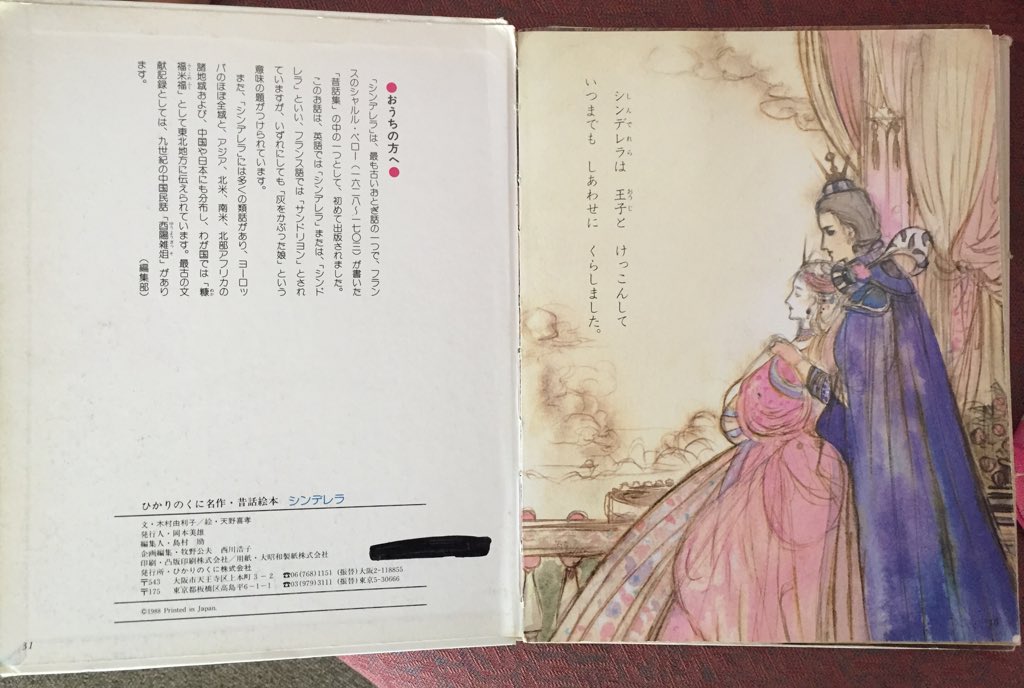 ●おうちの方へ●
「シンデレラ」は、最も古いおとぎ話の一つで、フラン
スのシャルル・ペロー(一六二八〜一七〇三)が書いた
「昔話集」の中の一つとして、初めて出版されました。
このお話は、英語では「シンデレラ」または、「シンド
レラ」といい、フランス語では「サンドリヨン」とされ
ていますが、いずれにしても「灰をかぶった娘」という
意味の題がつけられています。
また、「シンデレラ」には多くの類話があり、ヨーロッ
パのほぼ全域と、アジア、北米、南米、北部アフリカの
諸地域および、中国や日本にも分布し、わが国では「糠
福米福」として東北地方に伝えられています。最古の文
献記録としては、九世紀の中国民話「酉陽雑俎」があり
ます。
(編集部)
ひかりのくに名作・昔話絵本 シンデレラ
文・木村由利子/絵・天野喜孝
発行人・岡本美雄
編集人・島村 勋
企画編集・牧野公夫 西川浩子
印刷・凸版印刷株式会社/用紙・大昭和製紙株式会社
発行所・ひかりのくに株式会社
〒543 大阪市天王寺区上本町3-2 ☎06(768)1151 (振替)大阪2-118855
〒175 東京都板橋区高島平6-1-1 ☎03(979)3111 (振替)東京5-30666
©1988 Printed in Japan.
31
シンデレラは 王子と けっこんして
いつまでも しあわせに くらしました。
30